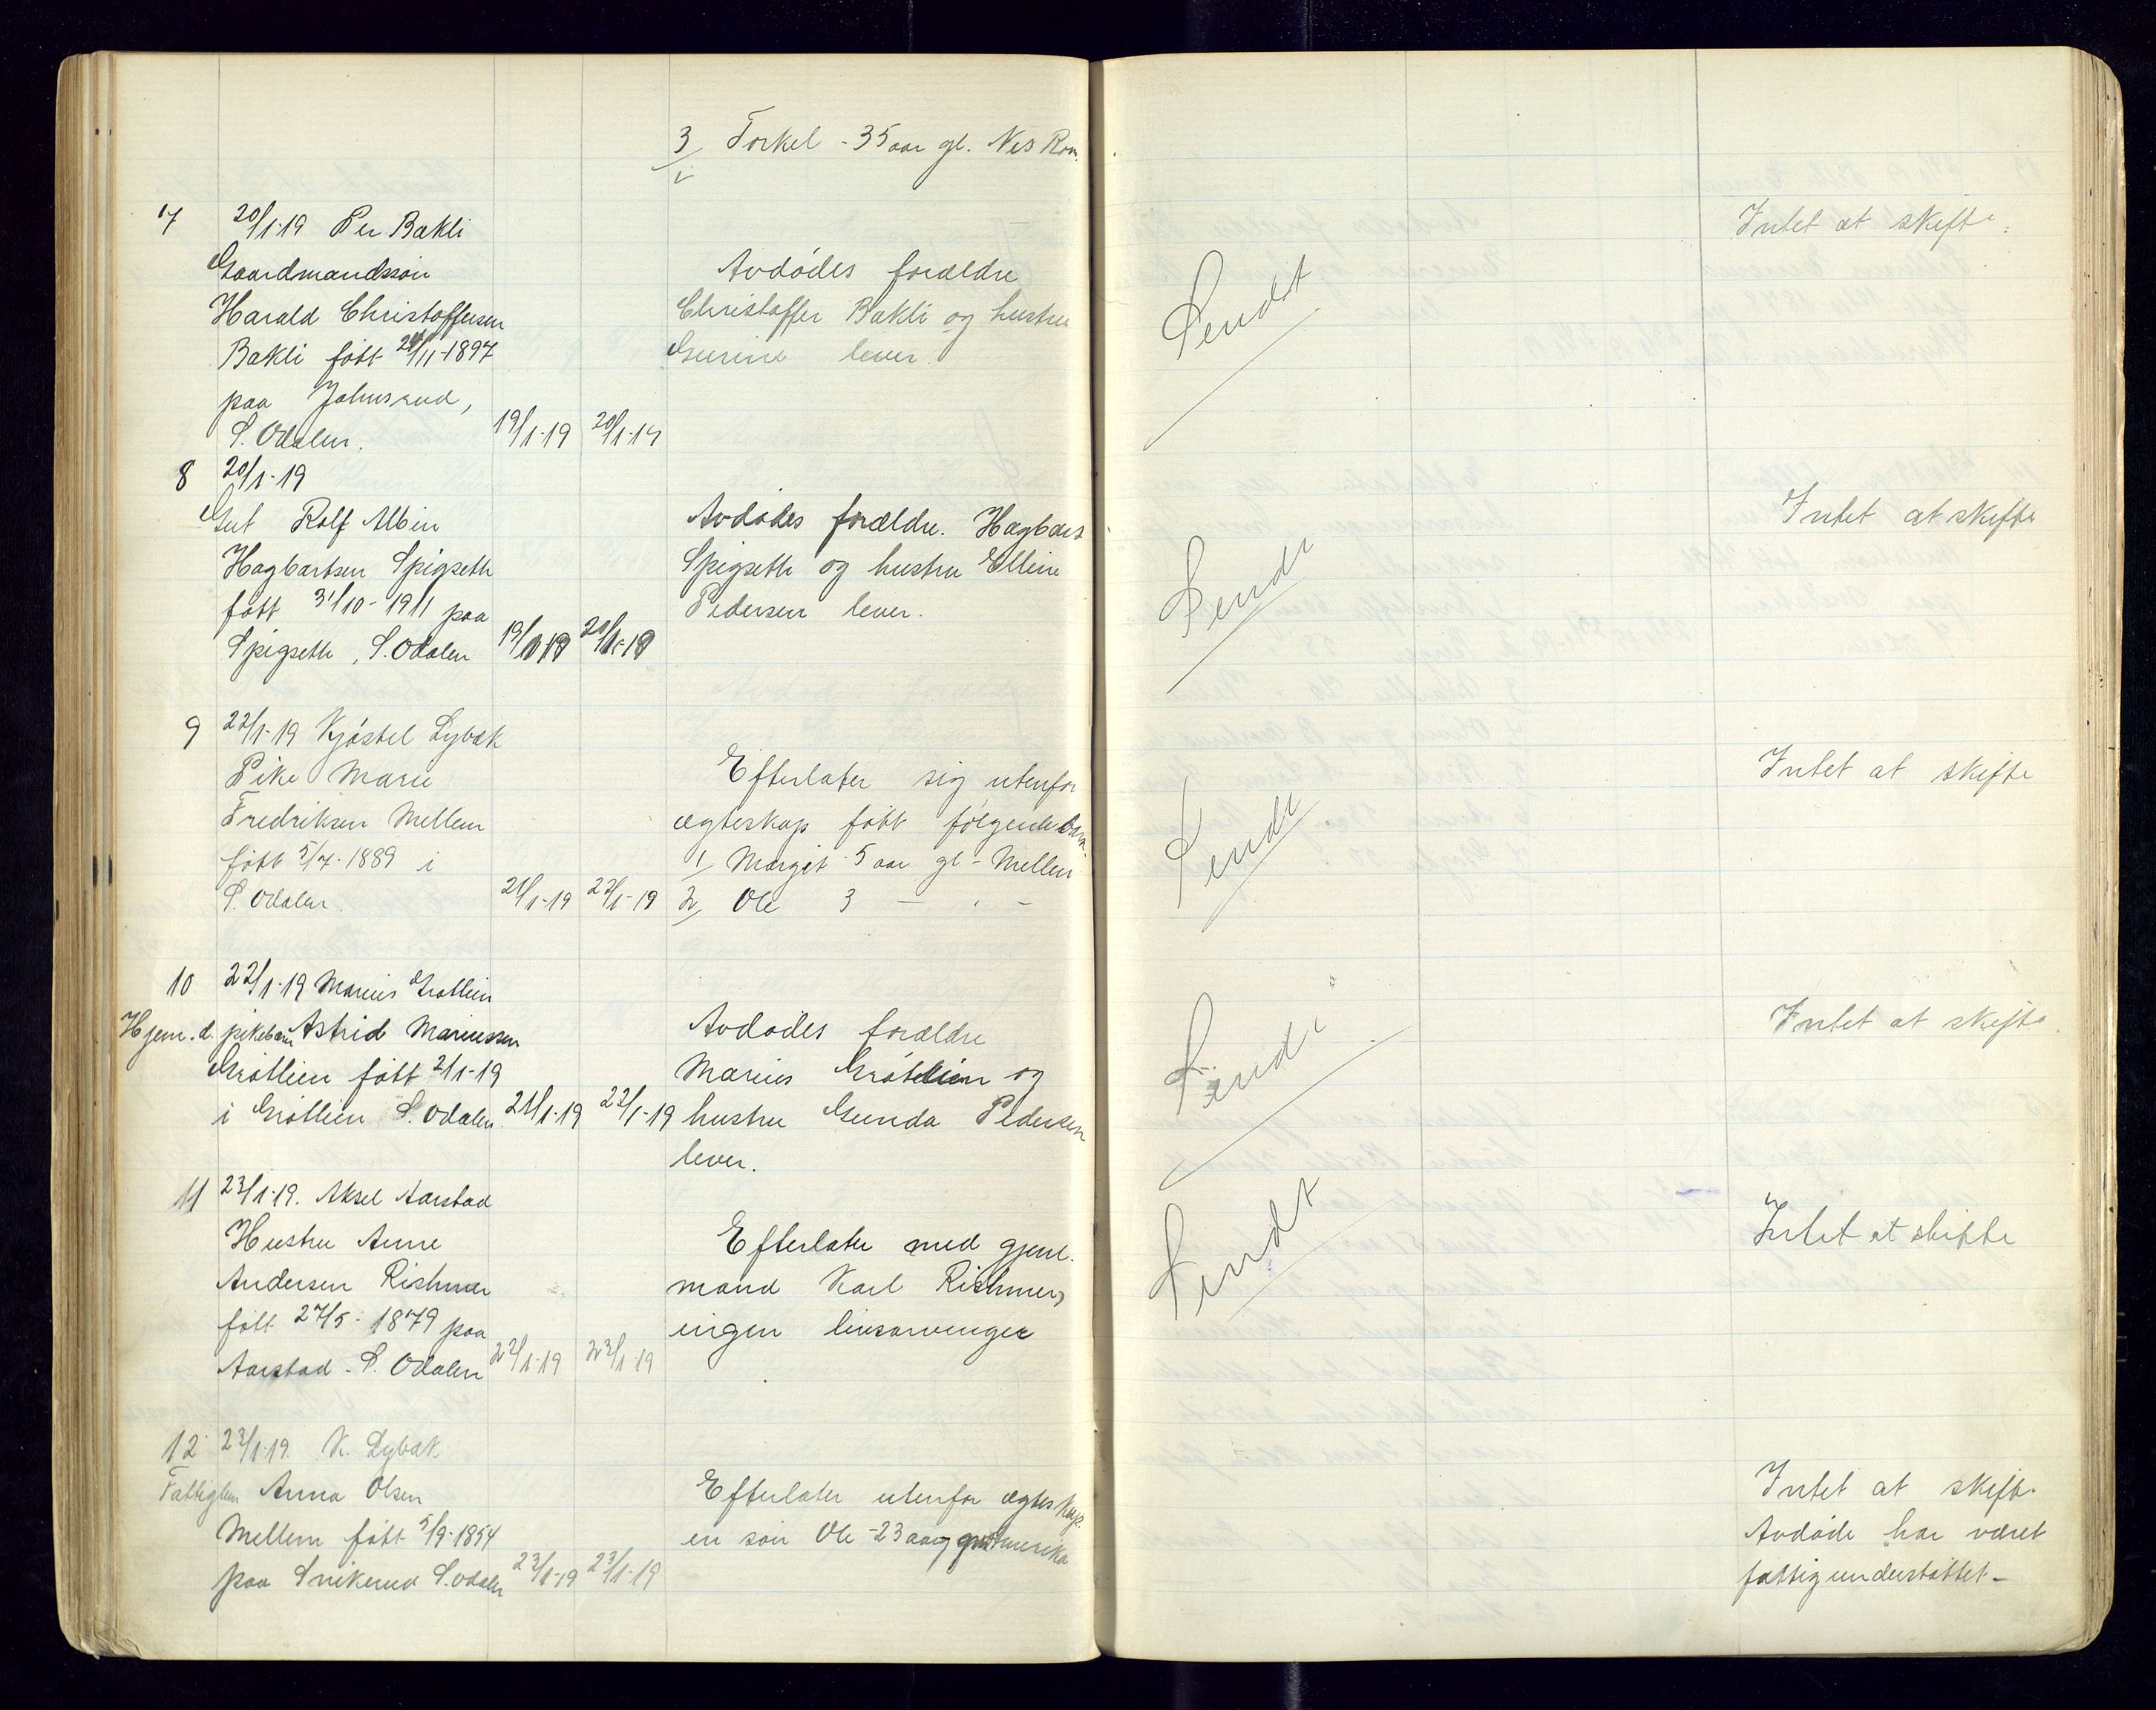 3/ Torkel - 35 aar gl. Nes Rom.
7 20/1-19 Per Bakli
Gaardmandssøn
Harald Christoffersen
Bakli født 29/11-1897
paa Johnsrud,
S. Odalen. 19/1-19 20/1-19
Avdødes forældre
Christoffer Bakli og hustru
Gurine lever.
Sendt
Intet at skifte.
8 20/1-19
Gut Rolf Albin
Hagbartsen Spigseth
født 31/10-1911 paa
Spigseth, S. Odalen 19/1-19 20/1-19
Avdødes forældre. Hagbart
Spigseth og hustru Elline
Pedersen lever.
Sendt
Intet at skifte
9 22/1-19 Kjøstel Lybæk
Pike Marie
Fredriksen Mellem
født 5/7-1889 i
S. Odalen. 21/1-19 22/1-19
Efterlater sig utenfor
egteskap født følgende barn.
1/ Margit 5 aar gl - Mellem
2/ Ole 3 — " -
Sendt
Intet at skifte
10 22/1-19 Marius Grøtlien
Hjem. d. pikebarn Astrid Mariussen
Grøtlien født 2/1-19
i Grøtlien S. Odalen. 21/1-19 22/1-19
Avdødes forældre
Marius Grøtlien og
hustru Gunda Pedersen
lever.
Sendt
Intet at skifte.
11 23/1-19. Aksel Aarstad
Hustru Anne
Andersen Rishmer
født 27/5-1879 paa
Aarstad - S. Odalen 22/1-19 23/1-19
Efterlater med gjenl.
mand Karl Rishmer,
ingen livsarvinger
Sendt
Intet at skifte
12 23/1-19. K. Lybæk
Fattiglem Anna Olsen
Mellem født 5/9-1854
paa Snikerud S. Odalen 23/1-19 23/1-19
Efterlater utenfor egteskap.
en søn Ole - 23 aar Amerika
Intet at skifte.
Avdøde har været
fattigunderstøttet -